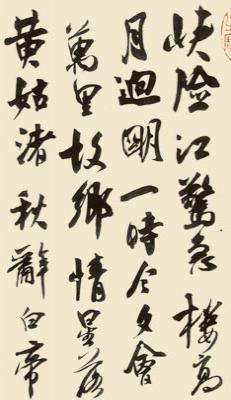 峡险江惊急楼高
月迥明一时今夕会
万里故乡情星落
黄姑渚秋辞白帝